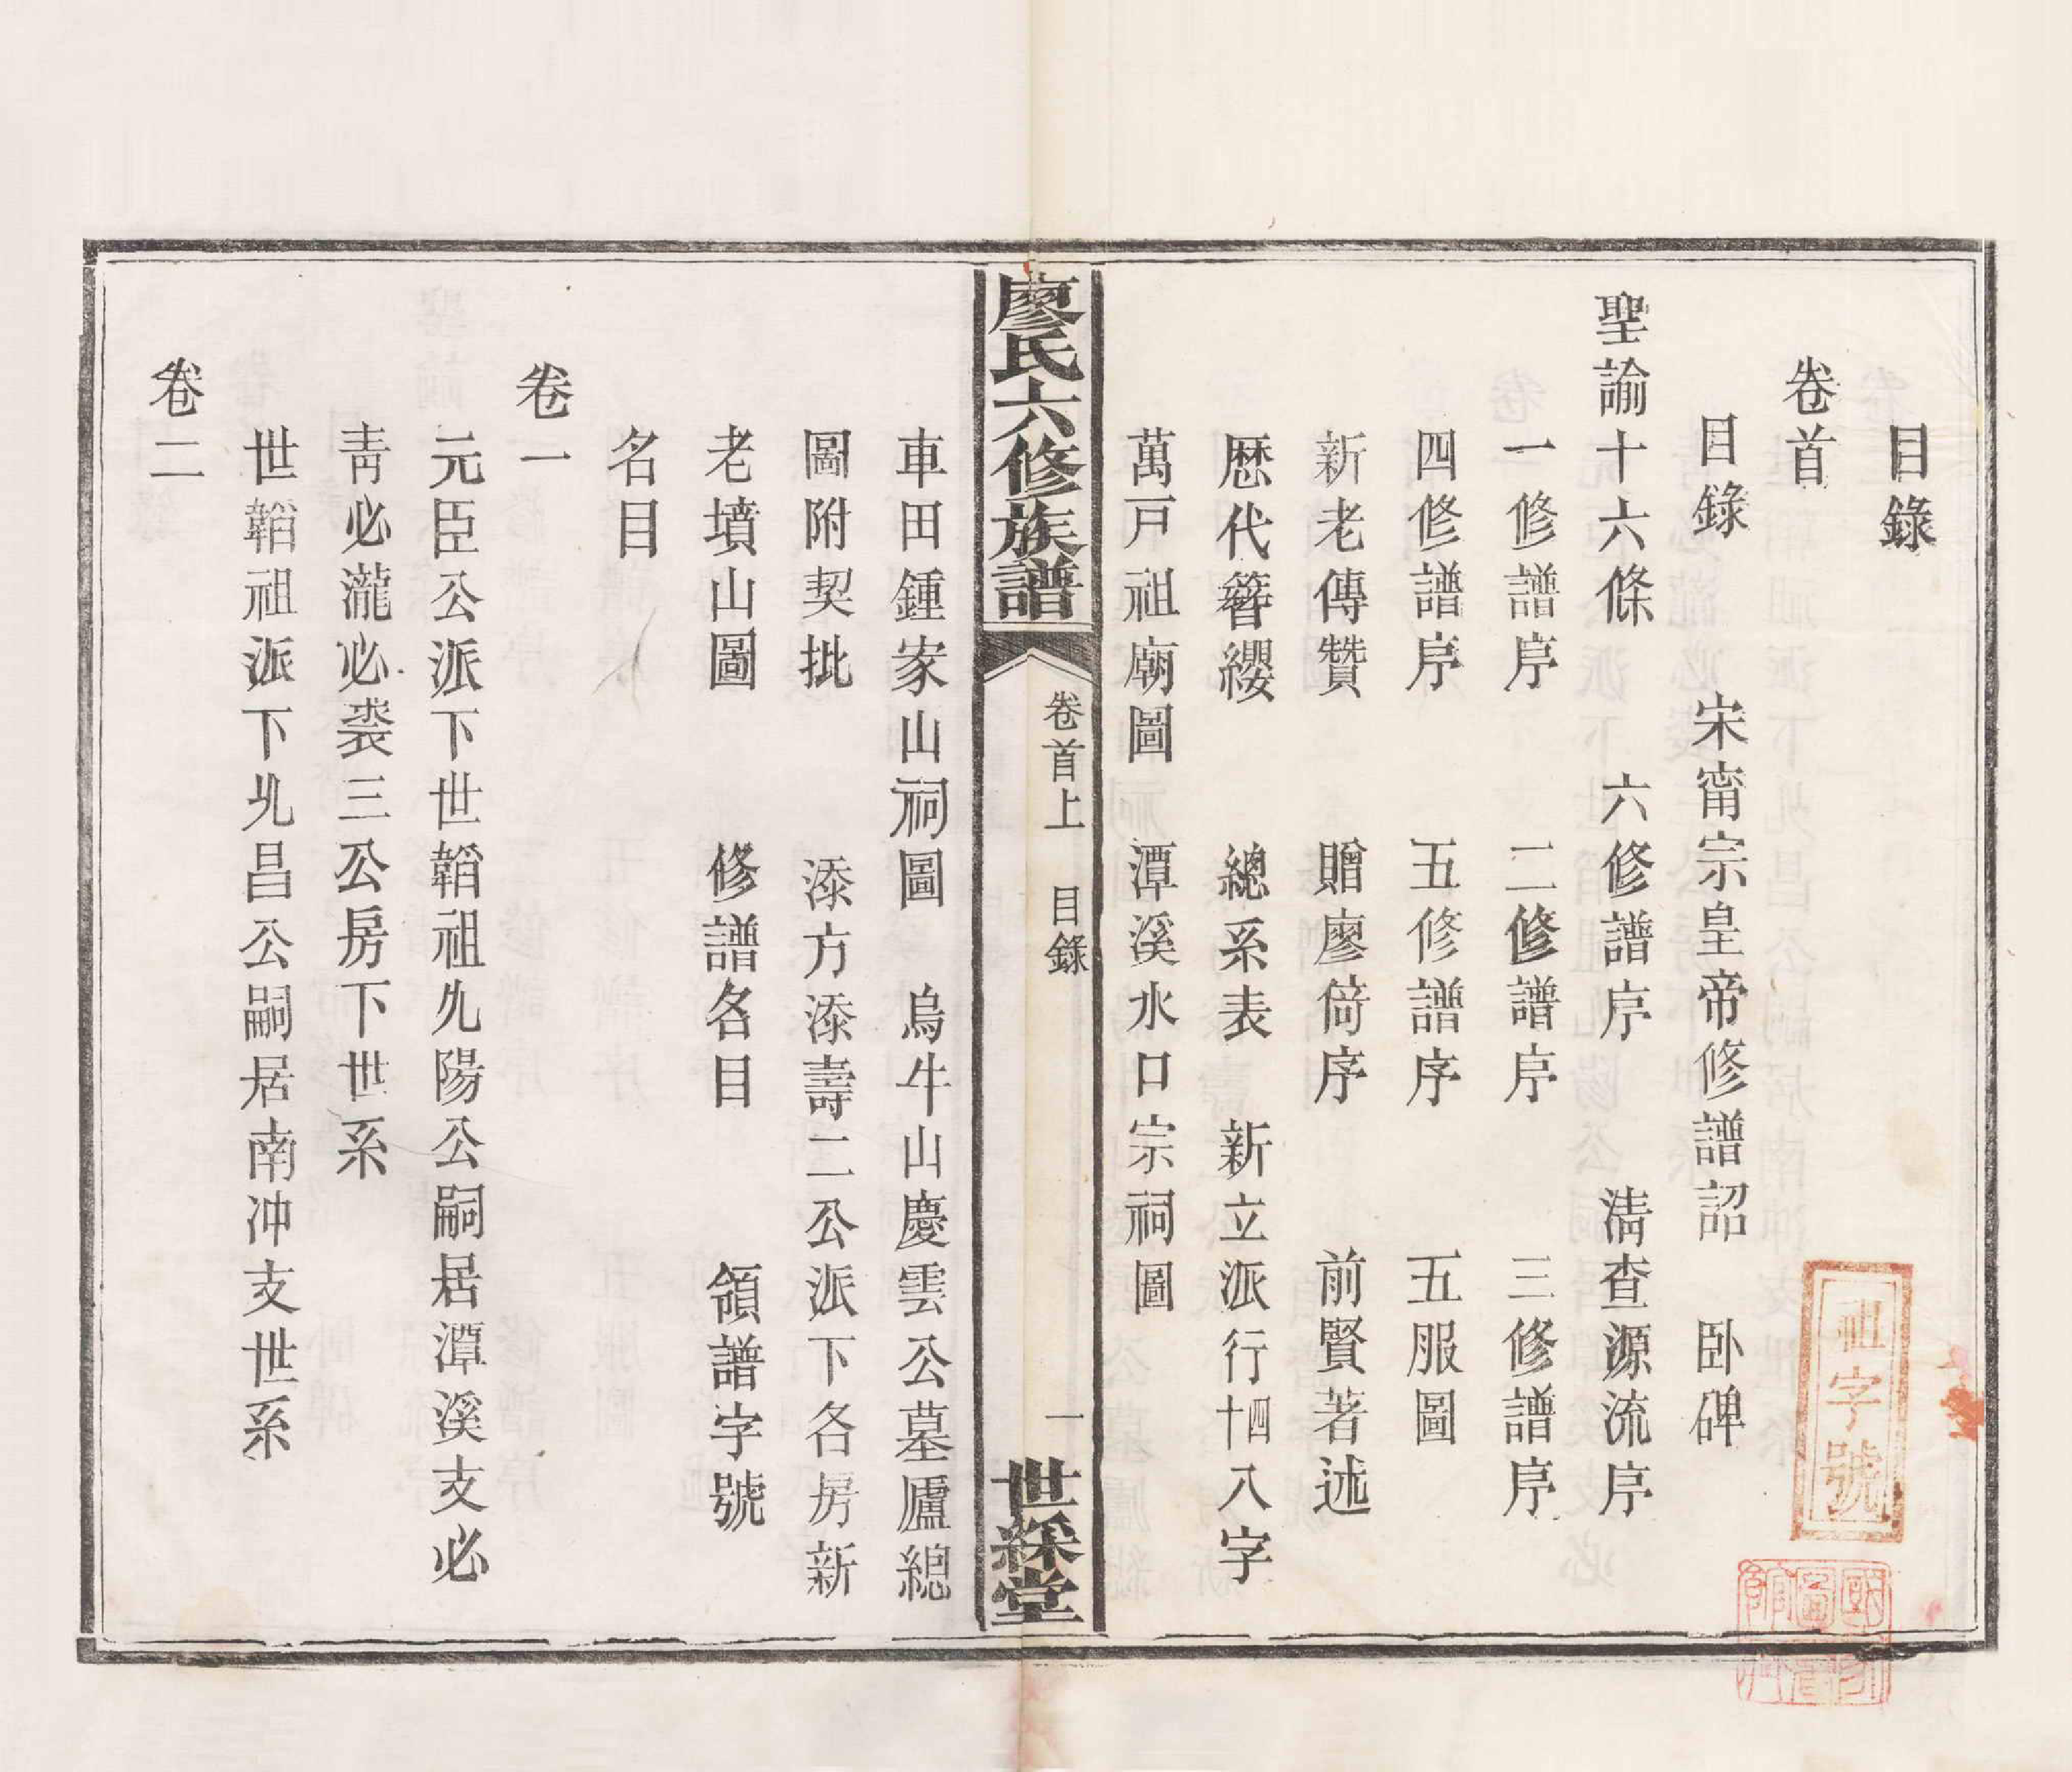 目錄
卷首
目錄 宋甯宗皇帝修譜詔 卧碑
聖諭十六條 六修譜序 淸查源流序
一修譜序 二修譜序 三修譜序
四修譜序 五修譜序 五服圖
新老傳贊 贈廖倚序 前賢著述
歷代簪纓 總系表 新立派行四十八字
萬戸祖廟圖 潭溪水口宗祠圖
廖氏六修族譜 卷首上 目錄 一 世綵堂
車田鍾家山祠圖 烏牛山慶雲公墓廬總
圖附契批 添方添壽二公派下各房新
老墳山圖 修譜名目 領譜字號
名目
卷一
元臣公派下世韜祖允陽公嗣居潭溪支必
靑必瀧必裘三公房下世系
世韜祖派下允昌公嗣居南冲支世系
卷二
祖字號